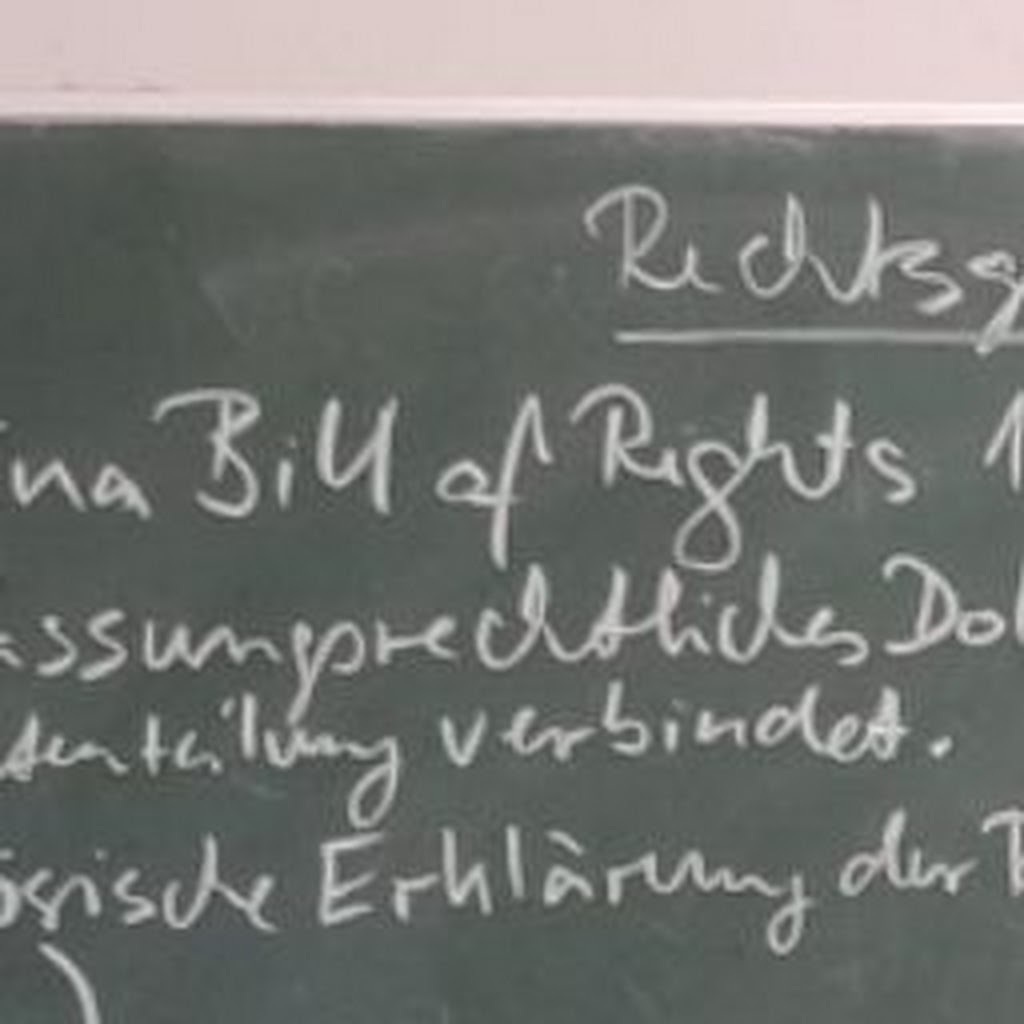 Rechtsg
ina Bill of Rights 1
assungsrechtliches Dok
tenteilung verbindet.
ösische Erklärung der R